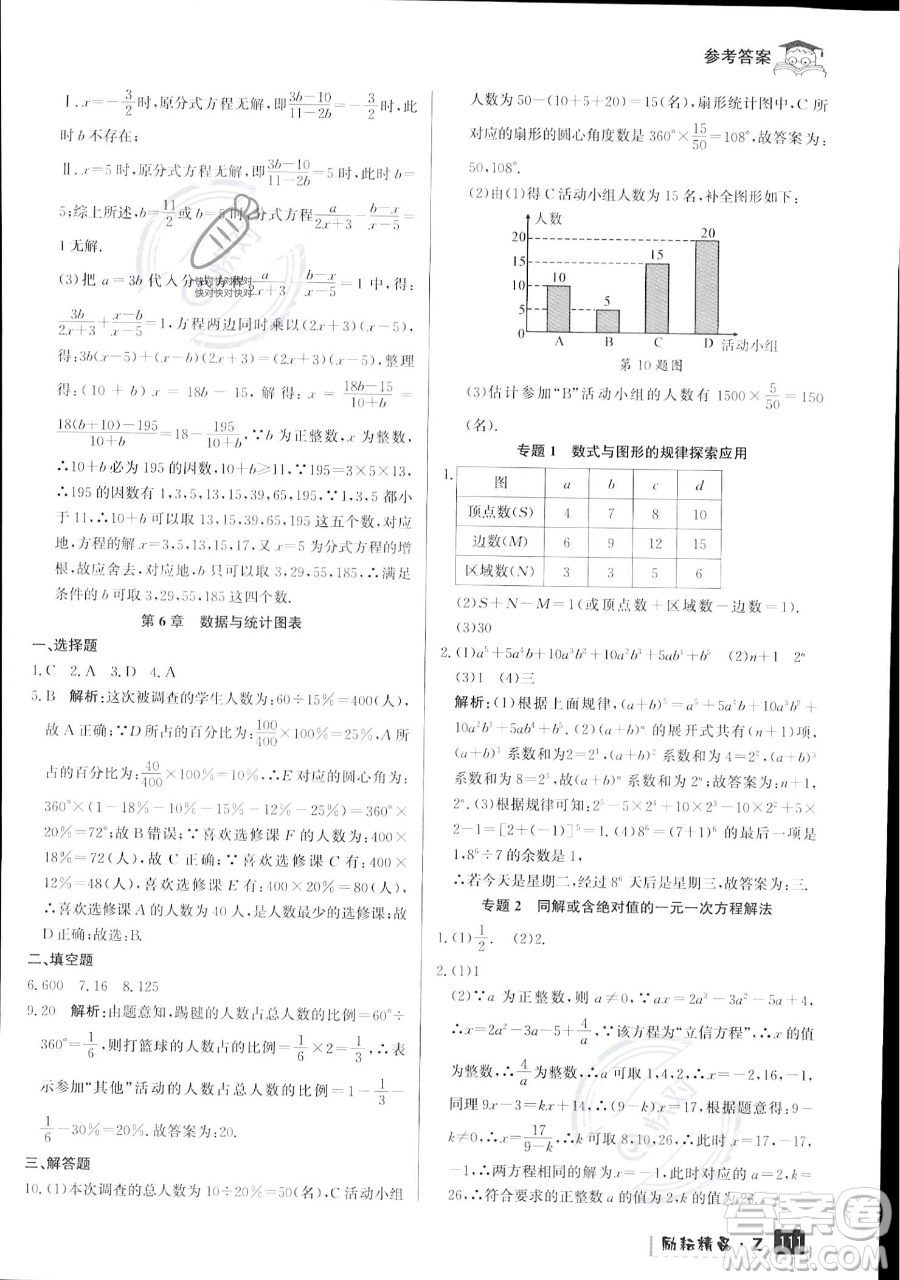 参考答案
Ⅰ.x=-3/2时,原分式方程无解,即(3b-10)/(11-2b)=-3/2时,此
时b不存在;
Ⅱ.x=5时,原分式方程无解,即(3b-10)/(11-2b)=5时,b=
5;综上所述,b=11/2或b=5时,分式方程a/(2x+3)-(b-x)/(x-5)=
1无解.
(3)把a=3b代入分式方程a/(2x+3)-(b-x)/(x-5)=1,得:
3b/(2x+3)+(x-b)/(x-5)=1,方程两边同时乘以(2x+3)(x-5),
得:3b(x-5)+(x-b)(2x+3)=(2x+3)(x-5),整理
得:(10+b)x=18b-15,解得:x=(18b-15)/(10+b)=
(18(10+b)-195)/(10+b)=18-195/(10+b),∵b为正整数,x为整数,
∴10+b必为195的因数,10+b≥11,∵195=3×5×13,
∴195的因数有1,3,5,13,15,39,65,195,1,3,5都小
于11,∴10+b可以取13,15,39,65,195这五个数,对应
地,方程的解x=3,5,13,15,17,又x=5为分式方程的增
根,故应舍去,对应地,b只可以取3,29,55,185,∴满足
条件的b可取3,29,55,185这四个数.
第6章 数据与统计图表
一、选择题
1.C 2.A 3.D 4.A
5.B 解析:这次被调查的学生人数为:60÷15%=400(人),
故A正确;∵D所占的百分比为:100/400×100%=25%,A所
占的百分比为:40/400×100%=10%,∴E对应的圆心角为:
360°×(1-18%-10%-15%-12%-25%)=360°×
20%=72°;故B错误;∵喜欢选修课F的人数为:400×
18%=72(人),故C正确;∵喜欢选修课C有:400×
12%=48(人),喜欢选修课E有:400×20%=80(人),
∴喜欢选修课A的人数为40人,是人数最少的选修课.
D正确;故选:B.
二、填空题
6.600 7.16 8.125
9.20 解析:由题意知,踢毽的人数占总人数的比例=60°÷
360°=1/6,则打篮球的人数占的比例=1/6×2=1/3,∴表
示参加“其他”活动的人数占总人数的比例=1-1/3-
1/6-30%=20%.故答案为:20.
三、解答题
10.(1)本次调查的总人数为10÷20%=50(名),C活动小组
人数为50-(10+5+20)=15(名),扇形统计图中,C所
对应的扇形的圆心角度数是360°×15/50=108°,故答案为:
50,108°.
(2)由(1)得C活动小组人数为15名,补全图形如下:
人数
20 15 10 5
10 5 15 20
A B C D 活动小组
第10题图
(3)估计参加“B”活动小组的人数有1500×5/50=150
(名).
专题1 数式与图形的规律探索应用
1.
图 a b c d
顶点数(S) 4 7 8 10
边数(M) 6 9 12 15
区域数(N) 3 3 5 6
(2)S+N-M=1(或顶点数+区域数-边数=1).
(3)30
2.(1)a⁵+5a⁴b+10a³b²+10a²b³+5ab⁴+b⁵ (2)n+1 2ⁿ
(3)1 (4)三
解析:(1)根据上面规律,(a+b)⁵=a⁵+5a⁴b+10a³b²+
10a²b³+5ab⁴+b⁵.(2)(a+b)ⁿ的展开式共有(n+1)项,
(a+b)¹系数和为2=2¹,(a+b)²系数和为4=2²,(a+b)³
系数和为8=2³,故(a+b)ⁿ系数和为2ⁿ;故答案为:n+1,
2ⁿ.(3)根据规律可知:2⁵-5×2⁴+10×2³-10×2²+5×
2-1=[2+(-1)]⁵=1.(4)8⁶=(7+1)⁶的最后一项是
1,8⁶÷7的余数是1,
∴若今天是星期二,经过8⁶天后是星期三,故答案为:三.
专题2 同解或含绝对值的一元一次方程解法
1.(1)1/2. (2)2.
2.(1)1
(2)∵a为正整数,则a≠0,∵ax=2a³-3a²-5a+4,
∴x=2a²-3a-5+4/a,∵该方程为“立信方程”,∴x为
整数,∴4/a为正整数,∴a可取1,4,2,∴x=-2,16,-1,
同理9x-3=kx+14,∴(9-k)x=17,根据题意得:9-
k≠0,∴x=17/(9-k),∴k可取8,10,26,∴x=17,-17,-1,
∴两方程都为“立信方程”,∴x=-1,∴a=2,k=
26,∴符合要求的正整数a的值为2,k的值为26.
励耘精品·Z 111
快对快对快对快对
快对快对快对快对
答案圈